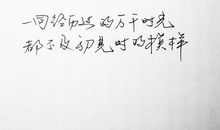 一同经历过的万千时光
都不及初见时的模样